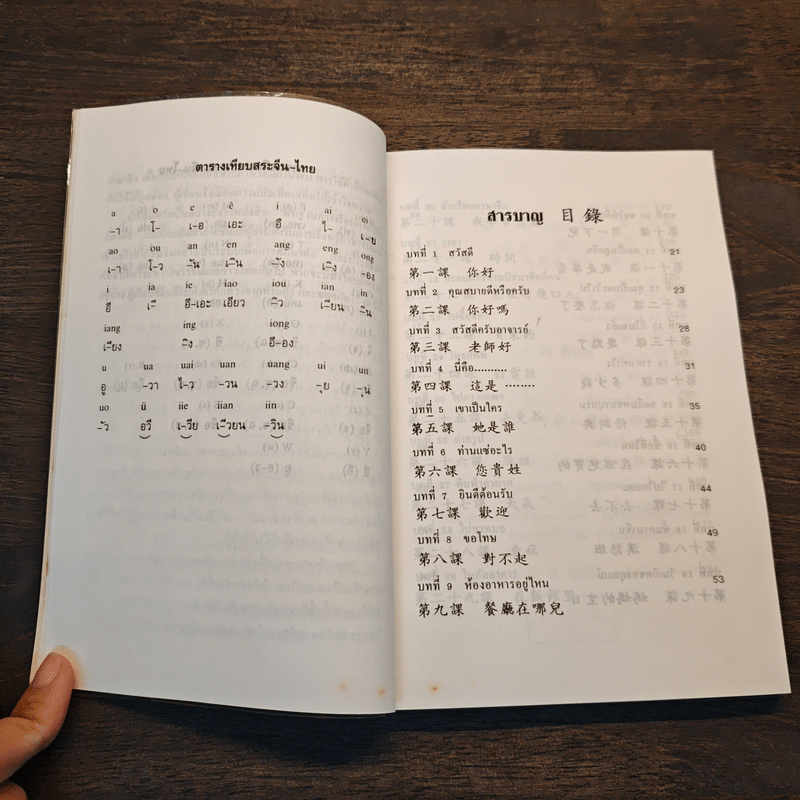 ตารางเทียบสระจีน-ไทย
a o e ê i ai ei
-า โ- เ-อ เ-อะ อี ไ- เ-ย
ao ou an en ang eng ong
เ-า โ-ว -ัน เ-ิน -ัง เ-ิง -อง
i ia ie iao iou ian in
อี เ-ี อี-เอะ เอียว -ิว เ-ียน -ิน
iang ing iong
เ-ียง -ิง อี-อง
u ua uai uan uang ui un
อู -วา ไ-ว -วน -วง -ุย -ุน
uo ü iie iian iin
-ัว อวี เ-วีย เ-วียน -วิน
สารบาญ 目錄
บทที่ 1 สวัสดี 21
第一課 你好
บทที่ 2 คุณสบายดีหรือครับ 23
第二課 你好嗎
บทที่ 3 สวัสดีครับอาจารย์ 28
第三課 老師好
บทที่ 4 นี่คือ.......... 31
第四課 這是 ········
บทที่ 5 เขาเป็นใคร 35
第五課 她是誰
บทที่ 6 ท่านแซ่อะไร 40
第六課 您貴姓
บทที่ 7 ยินดีต้อนรับ 44
第七課 歡迎
บทที่ 8 ขอโทษ 49
第八課 對不起
บทที่ 9 ห้องอาหารอยู่ไหน 53
第九課 餐廳在哪兒